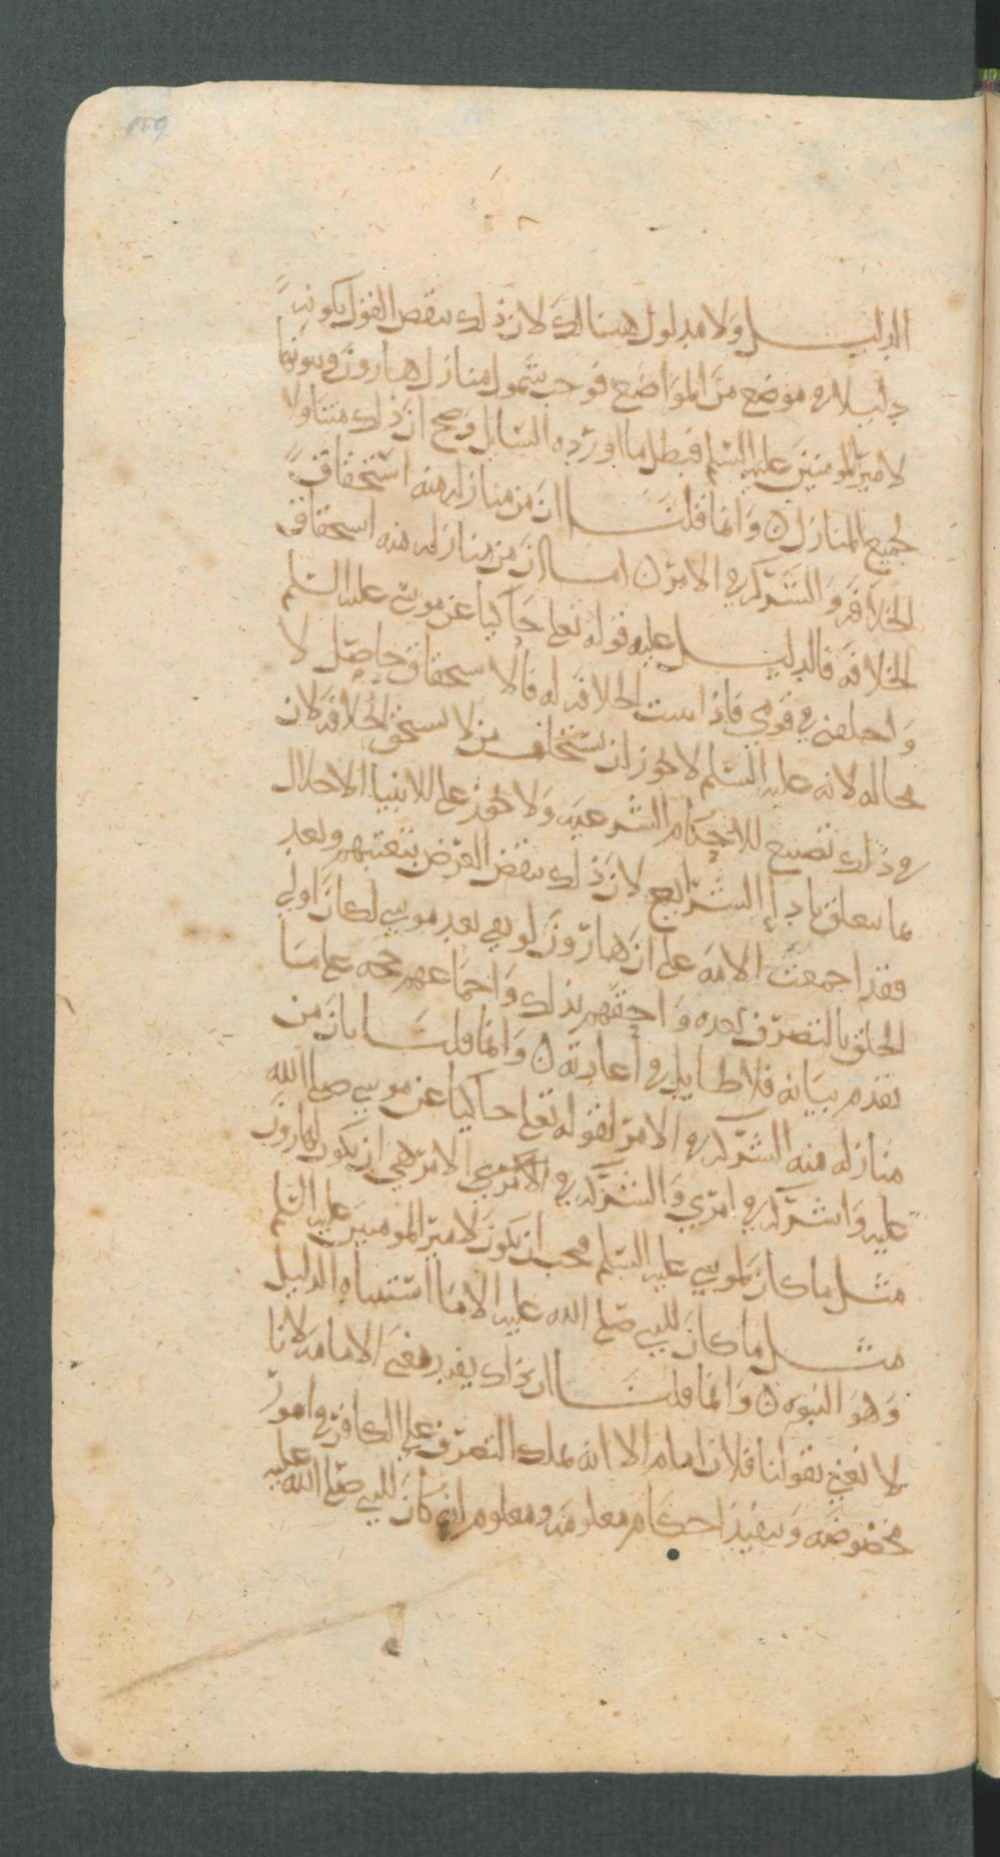 الدليل ولا مدلول هنالك لان ذلك ينقض القول بكونه
دليلا في موضع من المواضع فوجب شمول منازل هارون وثبوتها
لامير المومنين عليه السلم فبطل ما اورده السايل وصح ان ذلك متناولا
لجميع المنازل ٥ وانما قلنا ان من منازله منه استحقاق
الخلافة والشركه في الامر ٥ اما ان من منازله منه استحقاق
الخلافه فالدليل عليه قوله تعلى حاكيا عن موسى عليه السلم
واخلفني في قومي فاذا الخلافه له فالاستحقاق حاصل لا
محاله لانه عليه السلم لا يجوز ان يستخلف من لا يستحق الخلافه لان
في ذلك تضييع للاحكام الشرعيه ولا يجوز على الانبيا الاخلال
بما يتعلق باداء الشرايع لان ذلك ينقض الغرض ببعثتهم وبعد
فقد اجمعت الامه على ان هارون لو بقي بعد موسى لكان اولى
الخلق بالتصرف بعده واحقهم بذلك واجماعهم حجه على ما
تقدم بيانه فلا طايل في اعادته ٥ وانما قلنا بان من
منازله منه الشركه في الامر لقوله تعلى حاكيا عن موسى صلى الله
عليه واشركه في امري والشركه في الامر هي ان يكون لهارون
مثل ما كان لموسى عليه السلم فيجب ان يكون لامير المومنين عليه السلم
مثل ما كان للنبي صلى الله عليه الا ما استثناه الدليل
وهو النبوه ٥ وانما قلنا ان ذلك يفيد معنى الامامه لانا
لا نعني بقولنا فلان امام الا انه يملك التصرف على الكافة في امور
مخصوصه وتنفيذ احكام معلومه ومعلوم انه كان للنبي صلى الله عليه